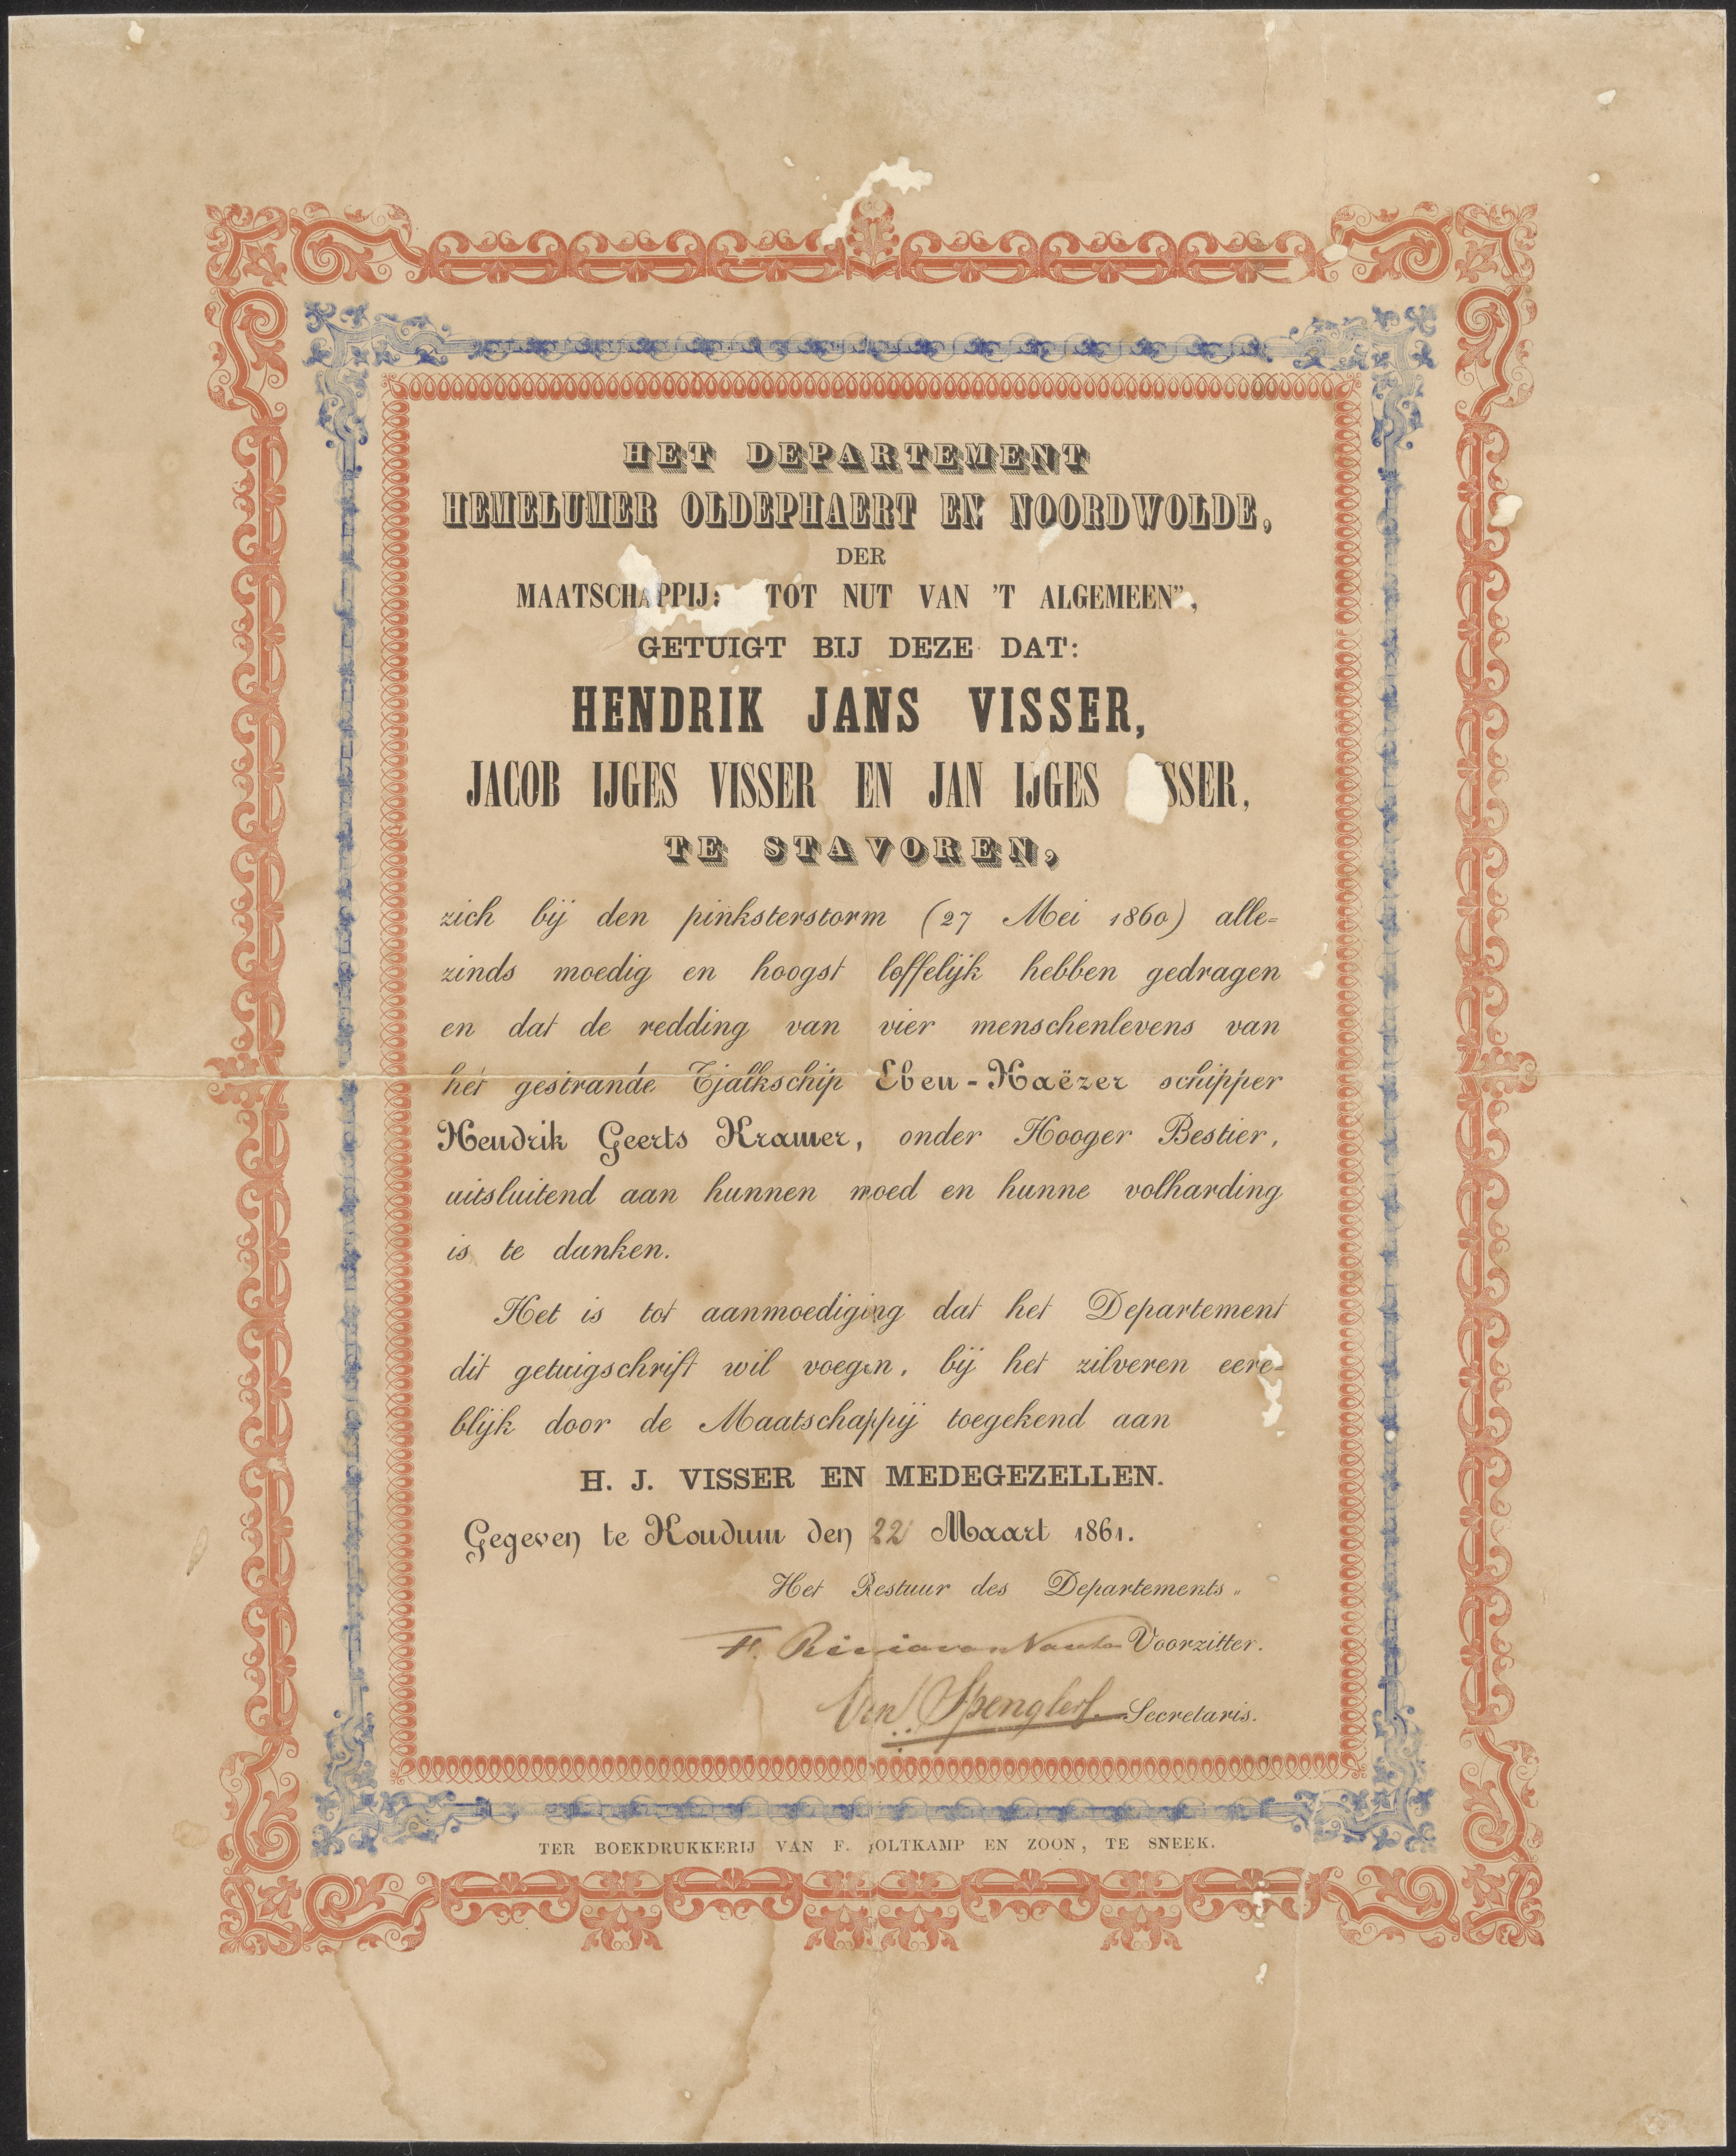 HET DEPARTEMENT
HEMELUMER OLDEPHAERT EN NOORDWOLDE,
DER
MAATSCHAPPIJ: TOT NUT VAN 'T ALGEMEEN",
GETUIGT BIJ DEZE DAT:
HENDRIK JANS VISSER,
JACOB IJGES VISSER EN JAN IJGES SSER,
TE STAVOREN,
zich bij den pinksterstorm (27 Mei 1860) alle=
zinds moedig en hoogst loffelijk hebben gedragen
en dat de redding van vier menschenlevens van
het gestrande Tjalkschip Eben-Haëzer schipper
Hendrik Geerts Kramer, onder Hooger Bestier,
uitsluitend aan hunnen moed en hunne volharding
is te danken.
Het is tot aanmoediging dat het Departement
dit getuigschrift wil voegen, bij het zilveren eere-
blijk door de Maatschappij toegekend aan
H. J. VISSER EN MEDEGEZELLEN.
Gegeven te Koudum den 22 Maart 1861.
Het Bestuur des Departements„
F. van Voorzitter.
Spengler Secretaris.
TER BOEKDRUKKERIJ VAN F. OLTKAMP EN ZOON, TE SNEEK.